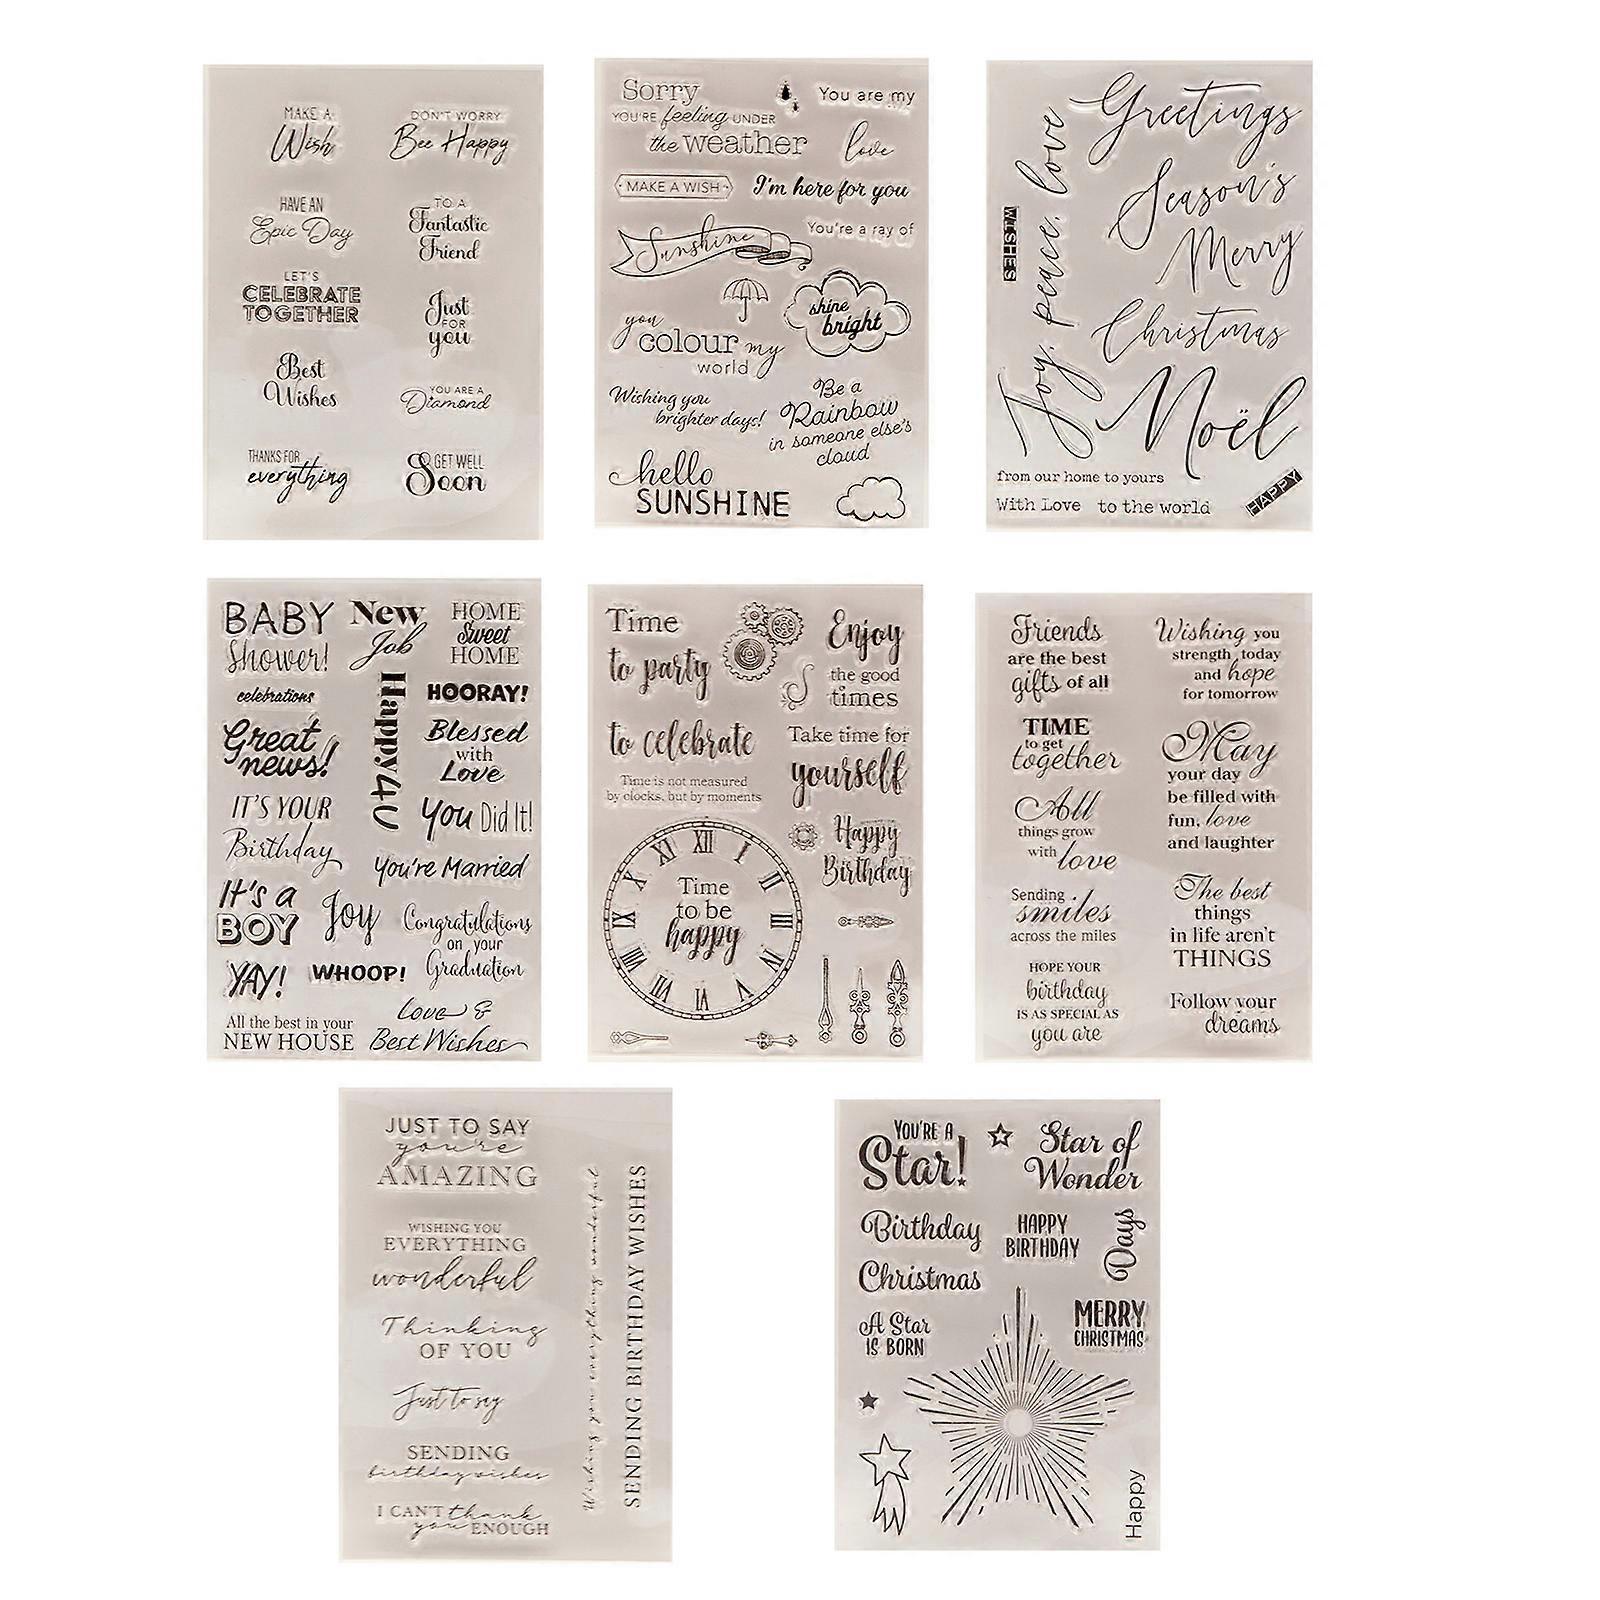 MAKE A
Wish
DON'T WORRY
Bee Happy
HAVE AN
Epic Day
TO A
Fantastic
Friend
LET'S
CELEBRATE
TOGETHER
Just
FOR
you
Best
Wishes
YOU ARE A
Diamond
THANKS FOR
everything
GET WELL
Soon
Sorry
YOU'RE feeling UNDER
the weather
You are my
love
MAKE A WISH
I'm here for you
Sunshine
You're a ray of
shine
bright
you
colour my
world
Wishing you
brighter days!
Be a
Rainbow
in someone else's
cloud
hello
SUNSHINE
Greetings
Season's
Merry
Christmas
Noël
Joy, peace, love
WISHES
from our home to yours
With Love to the world
HAPPY
BABY
Shower!
New
Job
HOME
Sweet
HOME
celebrations
Happy4U
HOORAY!
Great
news!
Blessed
with
Love
IT'S YOUR
Birthday
You Did It!
You're Married
It's a
BOY
Joy
Congratulations
on your
Graduation
YAY!
WHOOP!
All the best in your
NEW HOUSE
Love &
Best Wishes
Time
to party
Enjoy
the good
times
to celebrate
Take time for
yourself
Time is not measured
by clocks, but by moments
Happy
Birthday
XII
I
II
III
IV
V
VI
VII
VIII
IX
X
XI
Time
to be
happy
Friends
are the best
gifts of all
Wishing you
strength today
and hope
for tomorrow
TIME
to get
together
May
your day
be filled with
fun, love
and laughter
All
things grow
with love
Sending
smiles
across the miles
The best
things
in life aren't
THINGS
HOPE YOUR
birthday
IS AS SPECIAL AS
you are
Follow your
dreams
JUST TO SAY
you're
AMAZING
WISHING YOU
EVERYTHING
wonderful
Thinking
OF YOU
Just to say
SENDING
birthday wishes
I CAN'T thank
you ENOUGH
Wishing you everything wonderful
SENDING BIRTHDAY WISHES
YOU'RE A
Star!
Star of
Wonder
Birthday
HAPPY
BIRTHDAY
Days
Christmas
MERRY
CHRISTMAS
A Star
IS BORN
Happy